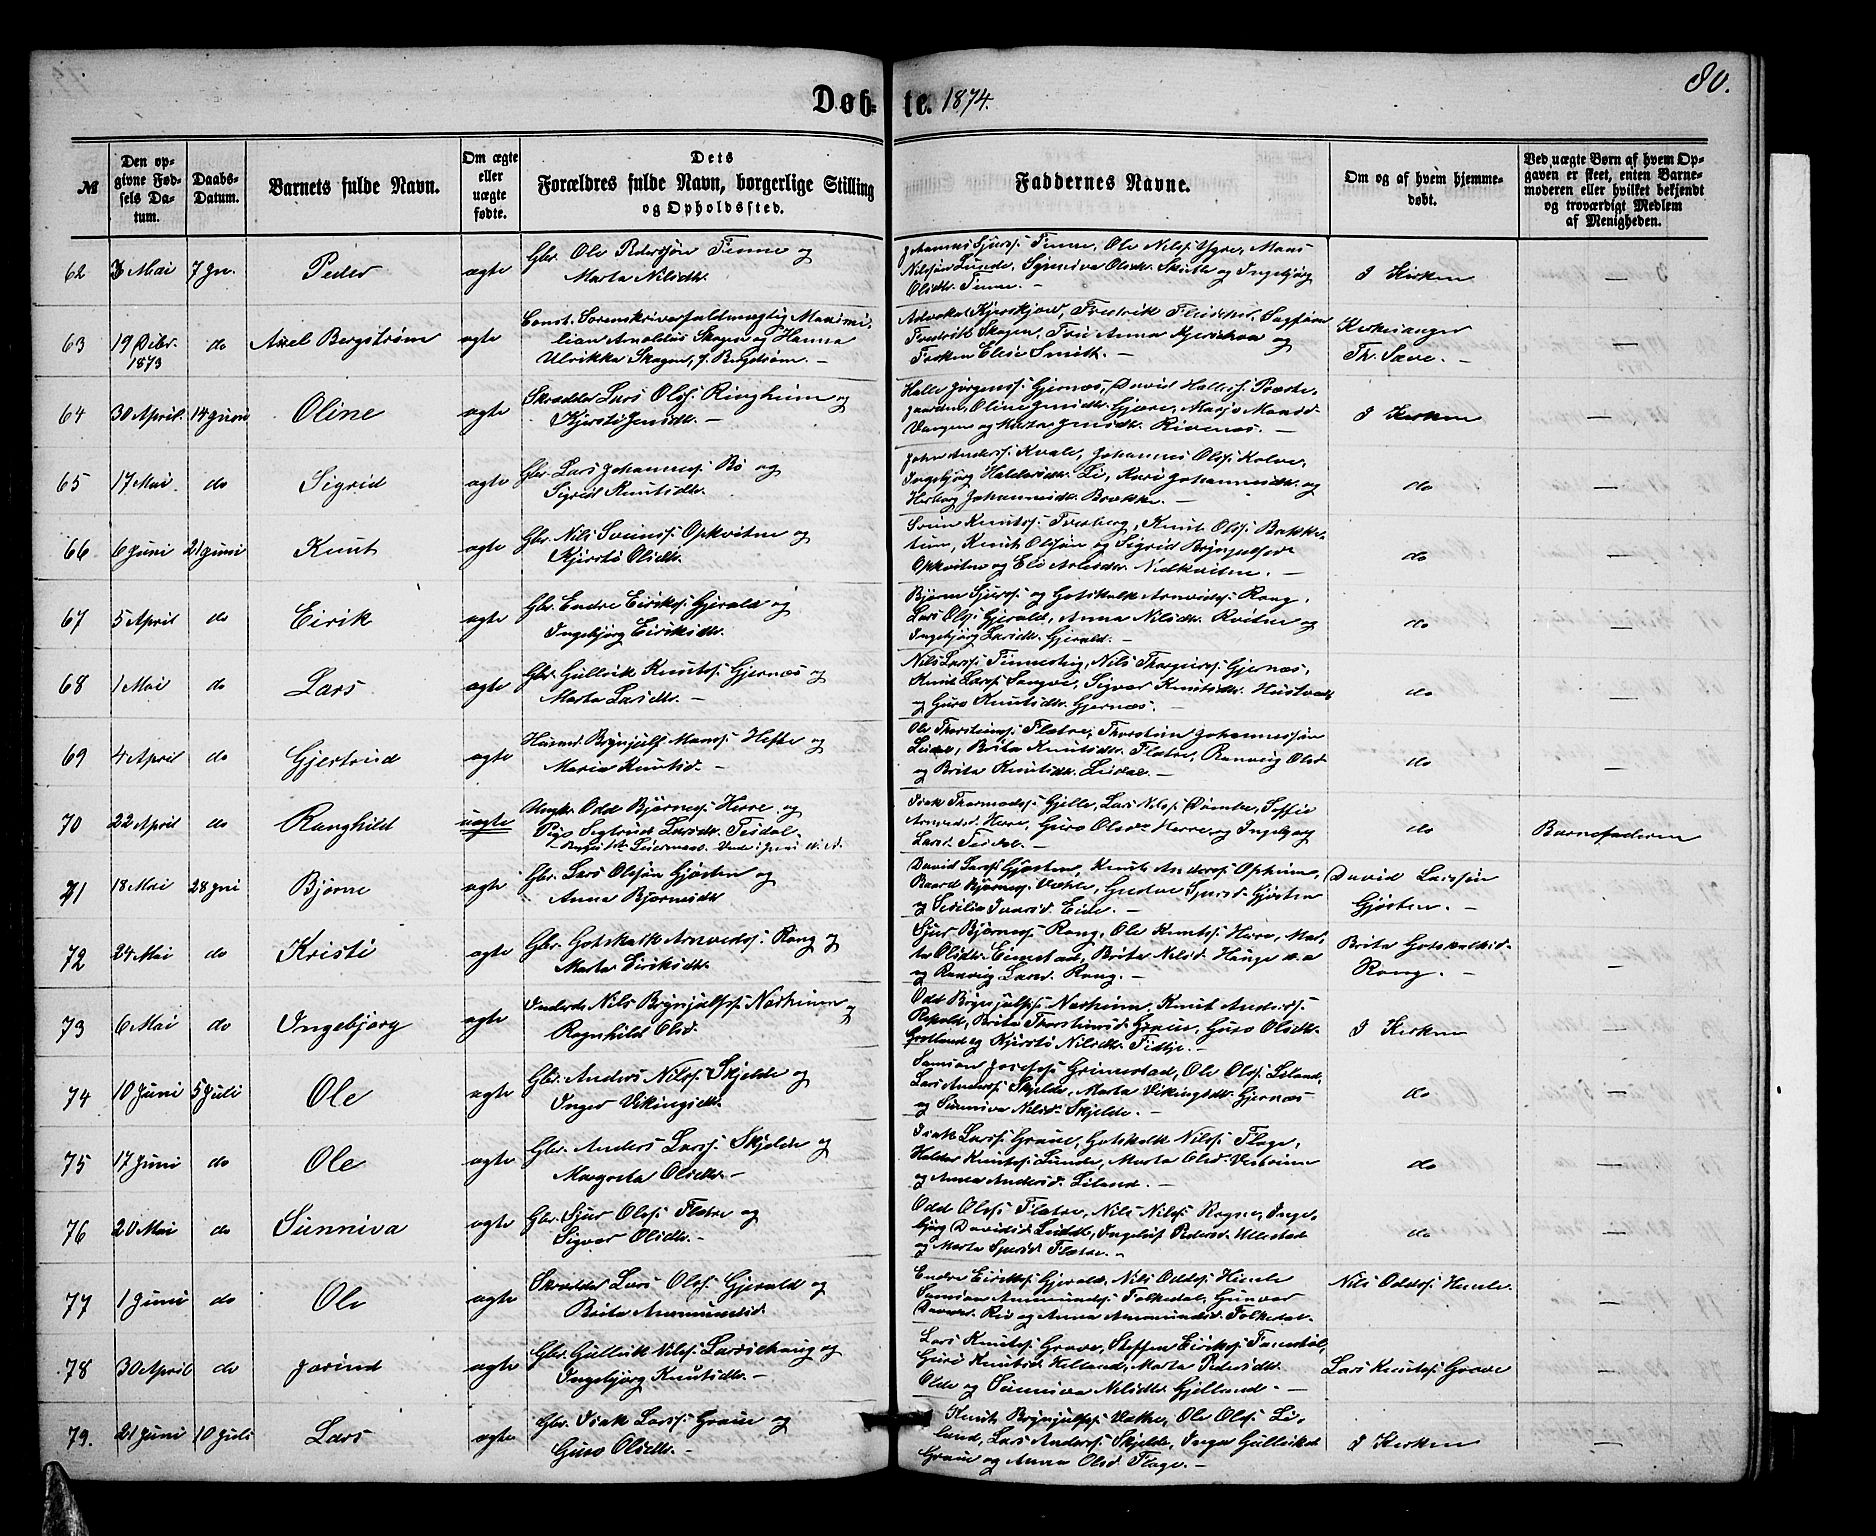 80.
Døb- te. 1874.
№
Den opgivne Fødsels Datum.
Daabs-Datum.
Barnets fulde Navn.
Om ægte eller uægte fødte.
Dets Forældres fulde Navn, borgerlige Stilling og Opholdssted.
Faddernes Navne.
Om og af hvem hjemmedøbt.
Ved uægte Børn af hvem Opgaven er skeet, enten Barnemoderen eller hvilket bekjendt og troværdigt Medlem af Menigheden.
62 3 Mai 7 Jn. Peder ægte Gbr. Ole Pedersøn Finne og
Marta Nilsdtr.
Johannes Sjurss. Finne, Ole Nilss. Ygre, Maas
Nilssøn Lunde, Synniva Olsdtr. Skutle og Ingebjørg
Olsdtr. Finne. — I Kirken —
63 19 Decbr. 1873 do Axel Bergstrøm ægte Const. Sorenskriverfuldmægtig Maximi-
lian Arnoldus Skagen og Hanna
Ulrikka Skagen, f. Bergstrøm. —
Advokat Kjerskjow, Fredrik Fleischer, Sagfører
Fredrik Skagen, Frue Anna Kjerschow og
Frøken Elise Smith. — Kirkesanger
Th. Sæve. — —
64 30 April. 14 Juni Oline ægte Skrædder Lars Olss. Ringheim og
Kjersti Jensdtr. —
Halle Jørgenss. Gjernæs, David Halless. Præste-
gaarden, Oline Jensdtr. Gjære, Marjo Monsd.
Vangen og Marta Jensdtr. Rivenæs. — I Kirken —
65 17 Mai do Sigrid ægte Gbr. Lars Johanness. Bø og
Sigrid Knutsdtr.
John Anderss. Kvale, Johannes Olss. Kolve,
Ingebjørg Haldorsdtr. Li, Kari Johannesdtr. og
Herborg Johannesdtr. Brække. — do —
66 6 Juni 21 Juni Knut ægte Gbr. Nils Sveinss. Opkvitne og
Kjersti Olsdtr.
Svein Knutss. Tverberg, Knut Olss. Bakke-
tun, Knut Olssøn og Sigrid Brynjulfsdr
Opkvitne og Eli Arlesdtr. Nedkvitne. — do —
67 5 April do Eirik ægte Gbr. Endre Eirikss. Gjerald og
Ingebjørg Eiriksdtr.
Bjørn Sjurss. og Gotskalk Arnvedss. Rong,
Lars Olss. Gjerald, Anna Nilsdtr. Kvitne og
Ingebjørg Larsdtr. Gjerald. — do —
68 1 Mai do Lars ægte Gbr. Gulleik Knutss. Gjernæs og
Marta Larsdtr. —
Nils Larss. Finnesteig, Nils Thorgeirss. Gjernæs,
Knut Larss. Sonve, Sigvor Knutsdtr.
og Guro Knutsdtr. Gjernæs. — do —
69 4 April do Gjertrud ægte Huusm. Brynjulf Monss. Hefte og
Maria Knutsd. —
Ole Thorsteinss. Flatre, Thorstein Johannessøn
Leidal, Brita Knutsdtr. Flatre, Ranveig Olsd.
og Brita Knutsdtr. Leidal. — do —
70 22 April do Ranghild uægte Ungk. Odd Bjørness. Herre og
Pige Sigtrud Larsdtr. Teidal.
Isak Thormodss. Gjelle, Lars Nilss. Dömbe, Soffie
Arnvedsd. Herre, Guro Olsdr Herre, og Ingebjørg
Larsd. Teidal. — do Barnefaderen
71 18 Mai 28 Jni Bjørne ægte Gbr. Lars Olssøn Gjøsten og
Anna Bjørnesdtr
David Larss. Gjøsten, Knut Anderss. Opheim,
Baard Bjørness. Væhle, Gudve Sjursd. Gjøsten
og Sesilia Ivarsd. Eide. — David Larssøn
Gjøsten. — —
72 24 Mai do Kristi ægte Gbr. Gotskalk Arnvedss. Rong og
Marta Eiriksdtr.
Sjur Bjørness. Rong, Ole Knutss. Herre, Mar-
ta Olsdtr. Eimstad, Brita Nilsd. Hauge
og Ranvig Larsd. Rong. — Brita Gotskalksd.
Rong. — —
73 6 Mai do Ingebjørg ægte Inderste Nils Brynjulfss. Norheim og
Ragnhild Olsd.
Odd Brynjulfss. Norheim, Knut Anderss.
Rokold, Brita Thorsteinsd. Graue, Guro Olsdtr.
Grotland og Kjersti Nilsdtr. Tidtje. — I Kirken —
74 10 Juni 5 Juli Ole ægte Gbr. Anders Nilss. Skjelde og
Inger Vikingsdtr.
Samson Josefss. Grimestad, Ole Olss. Liland,
Lars Anderss. Skjelde, Marta Vikingsdtr. Gjernæs
og Sunniva Nilsd. Skjelde. — do —
75 17 Juni do Ole ægte Gbr. Anders Larss. Skjelde og
Margreta Olsdtr. —
Isak Larss. Graue, Gotskalk Nilss. Flage,
Haldor Knutss. Lunde, Marta Olsd.
og Anna Andersd. Liland. — do —
76 20 Mai do Sunniva ægte Gbr. Sjur Olss. Flatre og
Sigvor Olsdtr. —
Odd Olss. Flatre, Nils Nilss. Rogne, Inge-
bjørg Davidsd. Leidal, Ingeleif Pedersd. Ullestad
og Marta Sjursd. Flatre. — do —
77 1 Juni do Ole ægte Skrædder Lars Olss. Gjerald og
Brita Aamundsd.
Endre Eirikss. Gjerald, Nils Oddss. Himle
Samson Aamundss. Folkedal, Gunvor
Rio og Anna Aamundsd. Folkedal. — Nils Oddss. Himle. —
78 30 April do Jorind ægte Gbr. Gulleik Nilss. Larsehaug og
Ingebjørg Knutsdtr. —
Lars Knutss. Grove, Steffen Eirikss. Tundal,
Guri Knutsd. Helland, Marta Pedersdtr.
Olde og Sunniva Nilsdtr. Gjelland. — Lars Knutss. Grove —
79. 21 Juni 10 Juli Lars ægte Gbr. Isak Larss. Graue og
Guro Olsdtr. —
Knut Brynjulfss. Væthe, Ole Olss. Li-
land, Lars Anderss. Skjelde, Inga Gulleiksd.
Graue og Anna Olsd. Flage. — I Kirken —